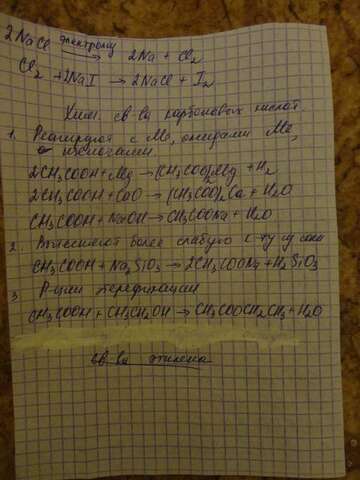 2NaCl электролиз → 2Na + Cl₂
Cl₂ + 2NaI → 2NaCl + I₂
Хим. св-ва карбоновых кислот
1. Реагируют с Me, оксидами Me,
основаниями
2CH₃COOH + Mg → (CH₃COO)₂Mg + H₂
2CH₃COOH + CaO → (CH₃COO)₂Ca + H₂O
CH₃COOH + NaOH → CH₃COONa + H₂O
2 Вытесняют более слабую к-ту из соли
CH₃COOH + Na₂SiO₃ → 2CH₃COONa + H₂SiO₃
3 Р-ции этерификации
CH₃COOH + CH₃CH₂OH → CH₃COOCH₂CH₃ + H₂O
св-ва этилена